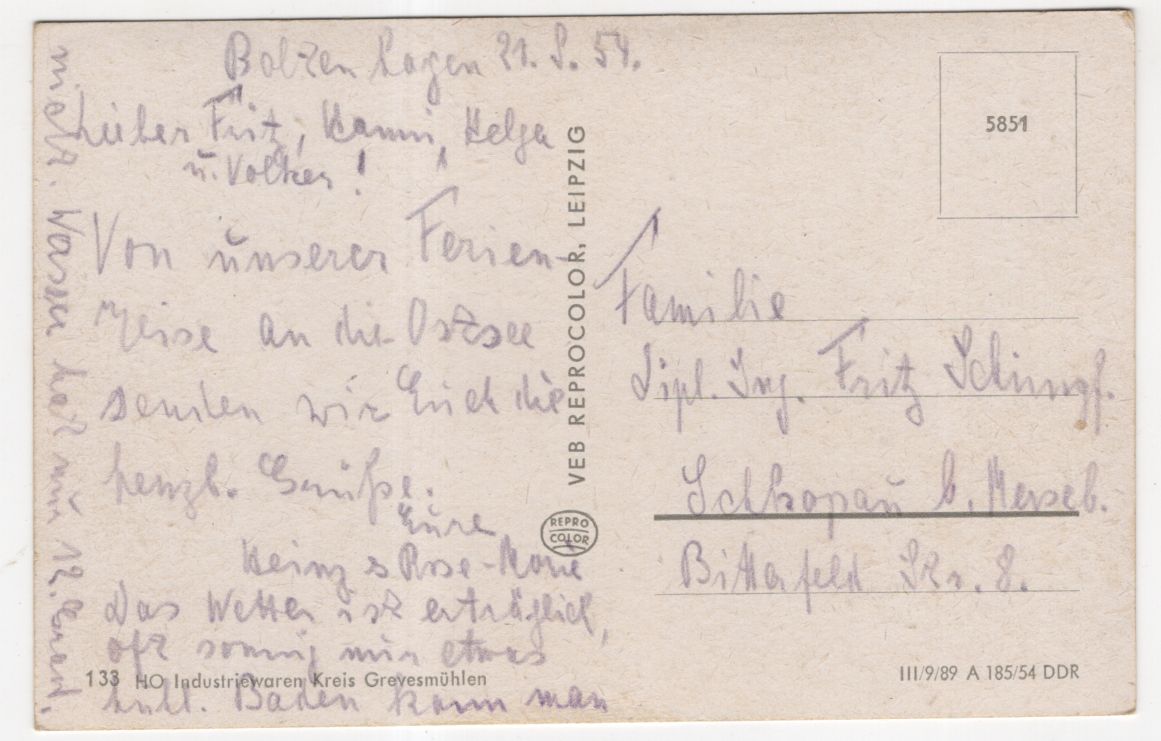 Boltenhagen 21. 8. 54.
Lieber Fritz, Hanni, Helga
u. Volker!
Von unserer Ferien-
Reise an die Ostsee
senden wir Euch die
herzl. Grüße.
Eure
Heinz & Rose-Marie
Das Wetter ist erträglich,
oft sonnig nur etwas
kühl. Baden kann man
nicht. Wasser hat nur 12. Grad.
133 HO Industriewaren Kreis Grevesmühlen
VEB REPROCOLOR, LEIPZIG
REPRO
COLOR
5851
Familie
Dipl. Ing. Fritz
Schkopau b. Merseb.
Bitterfeld Str. 8.
III/9/89 A 185/54 DDR